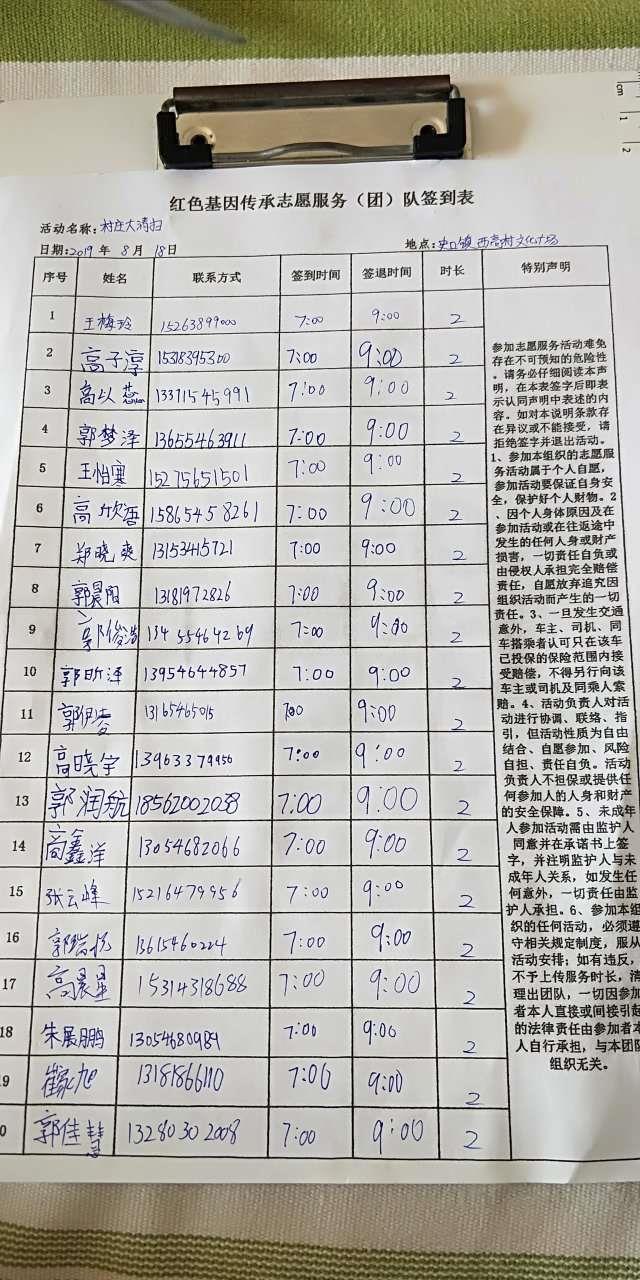 红色基因传承志愿服务（团）队签到表
活动名称：村庄大清扫
日期：2019 年 8 月 18日 地点：史口镇 西高村文化广场
序号 姓名 联系方式 签到时间 签退时间 时长 特别声明
1 王梅玲 15263899000 7:00 9:00 2
2 高子淳 15318395300 7:00 9:00 2
3 高以蕊 13371545991 7:00 9:00 2
4 郭梦泽 13655463911 7:00 9:00 2
5 王怡骞 15275651501 7:00 9:00 2
6 高欣香 15865458261 7:00 9:00 2
7 郑晓爽 13153415721 7:00 9:00 2
8 郭晨阳 13181972826 7:00 9:00 2
9 郭俊浩 13455464269 7:00 9:00 2
10 郭昕泽 13954644857 7:00 9:00 2
11 13165465015 7:00 9:00 2
12 高晓宇 13963379956 7:00 9:00 2
13 郭润航 18562002038 7:00 9:00 2
14 高鑫洋 13054682066 7:00 9:00 2
15 张云峰 15216479956 7:00 9:00 2
16 郭瑞悦 13615460224 7:00 9:00 2
17 高晨星 15314318688 7:00 9:00 2
18 朱展鹏 13054680989 7:00 9:00 2
9 崔家旭 13181866110 7:00 9:00 2
0 郭佳慧 13280302008 7:00 9:00 2
参加志愿服务活动难免
存在不可预知的危险性
。请务必仔细阅读本声
明，在本表签字后即表
示认同声明中表述的内
容。如对本说明条款存
在异议或不能接受，请
拒绝签字并退出活动。
1、参加本组织的志愿服
务活动属于个人自愿，
参加活动要保证自身安
全，保护好个人财物。2
、因个人身体原因及在
参加活动或在往返途中
发生的任何人身或财产
损害，一切责任自负或
由侵权人承担完全赔偿
责任，自愿放弃追究因
组织活动而产生的一切
责任。3、一旦发生交通
意外，车主、司机、同
车搭乘者认可只在该车
已投保的保险范围内接
受赔偿，不得另行向该
车主或司机及同乘人索
赔。4、活动负责人对活
动进行协调、联络、指
引，但活动性质为自由
结合、自愿参加、风险
自担、责任自负。活动
负责人不担保或提供任
何参加人的人身和财产
的安全保障。5、未成年
人参加活动需由监护人
同意并在承诺书上签
字，并注明监护人与未
成年人关系，如发生任
何意外，一切责任由监
护人承担。6、参加本组
织的任何活动，必须遵
守相关规定制度，服从
活动安排；如有违反，
不予上传服务时长，清
理出团队，一切因参加
者本人直接或间接引起
的法律责任由参加者本
人自行承担，与本团队
组织无关。
cm
1
2